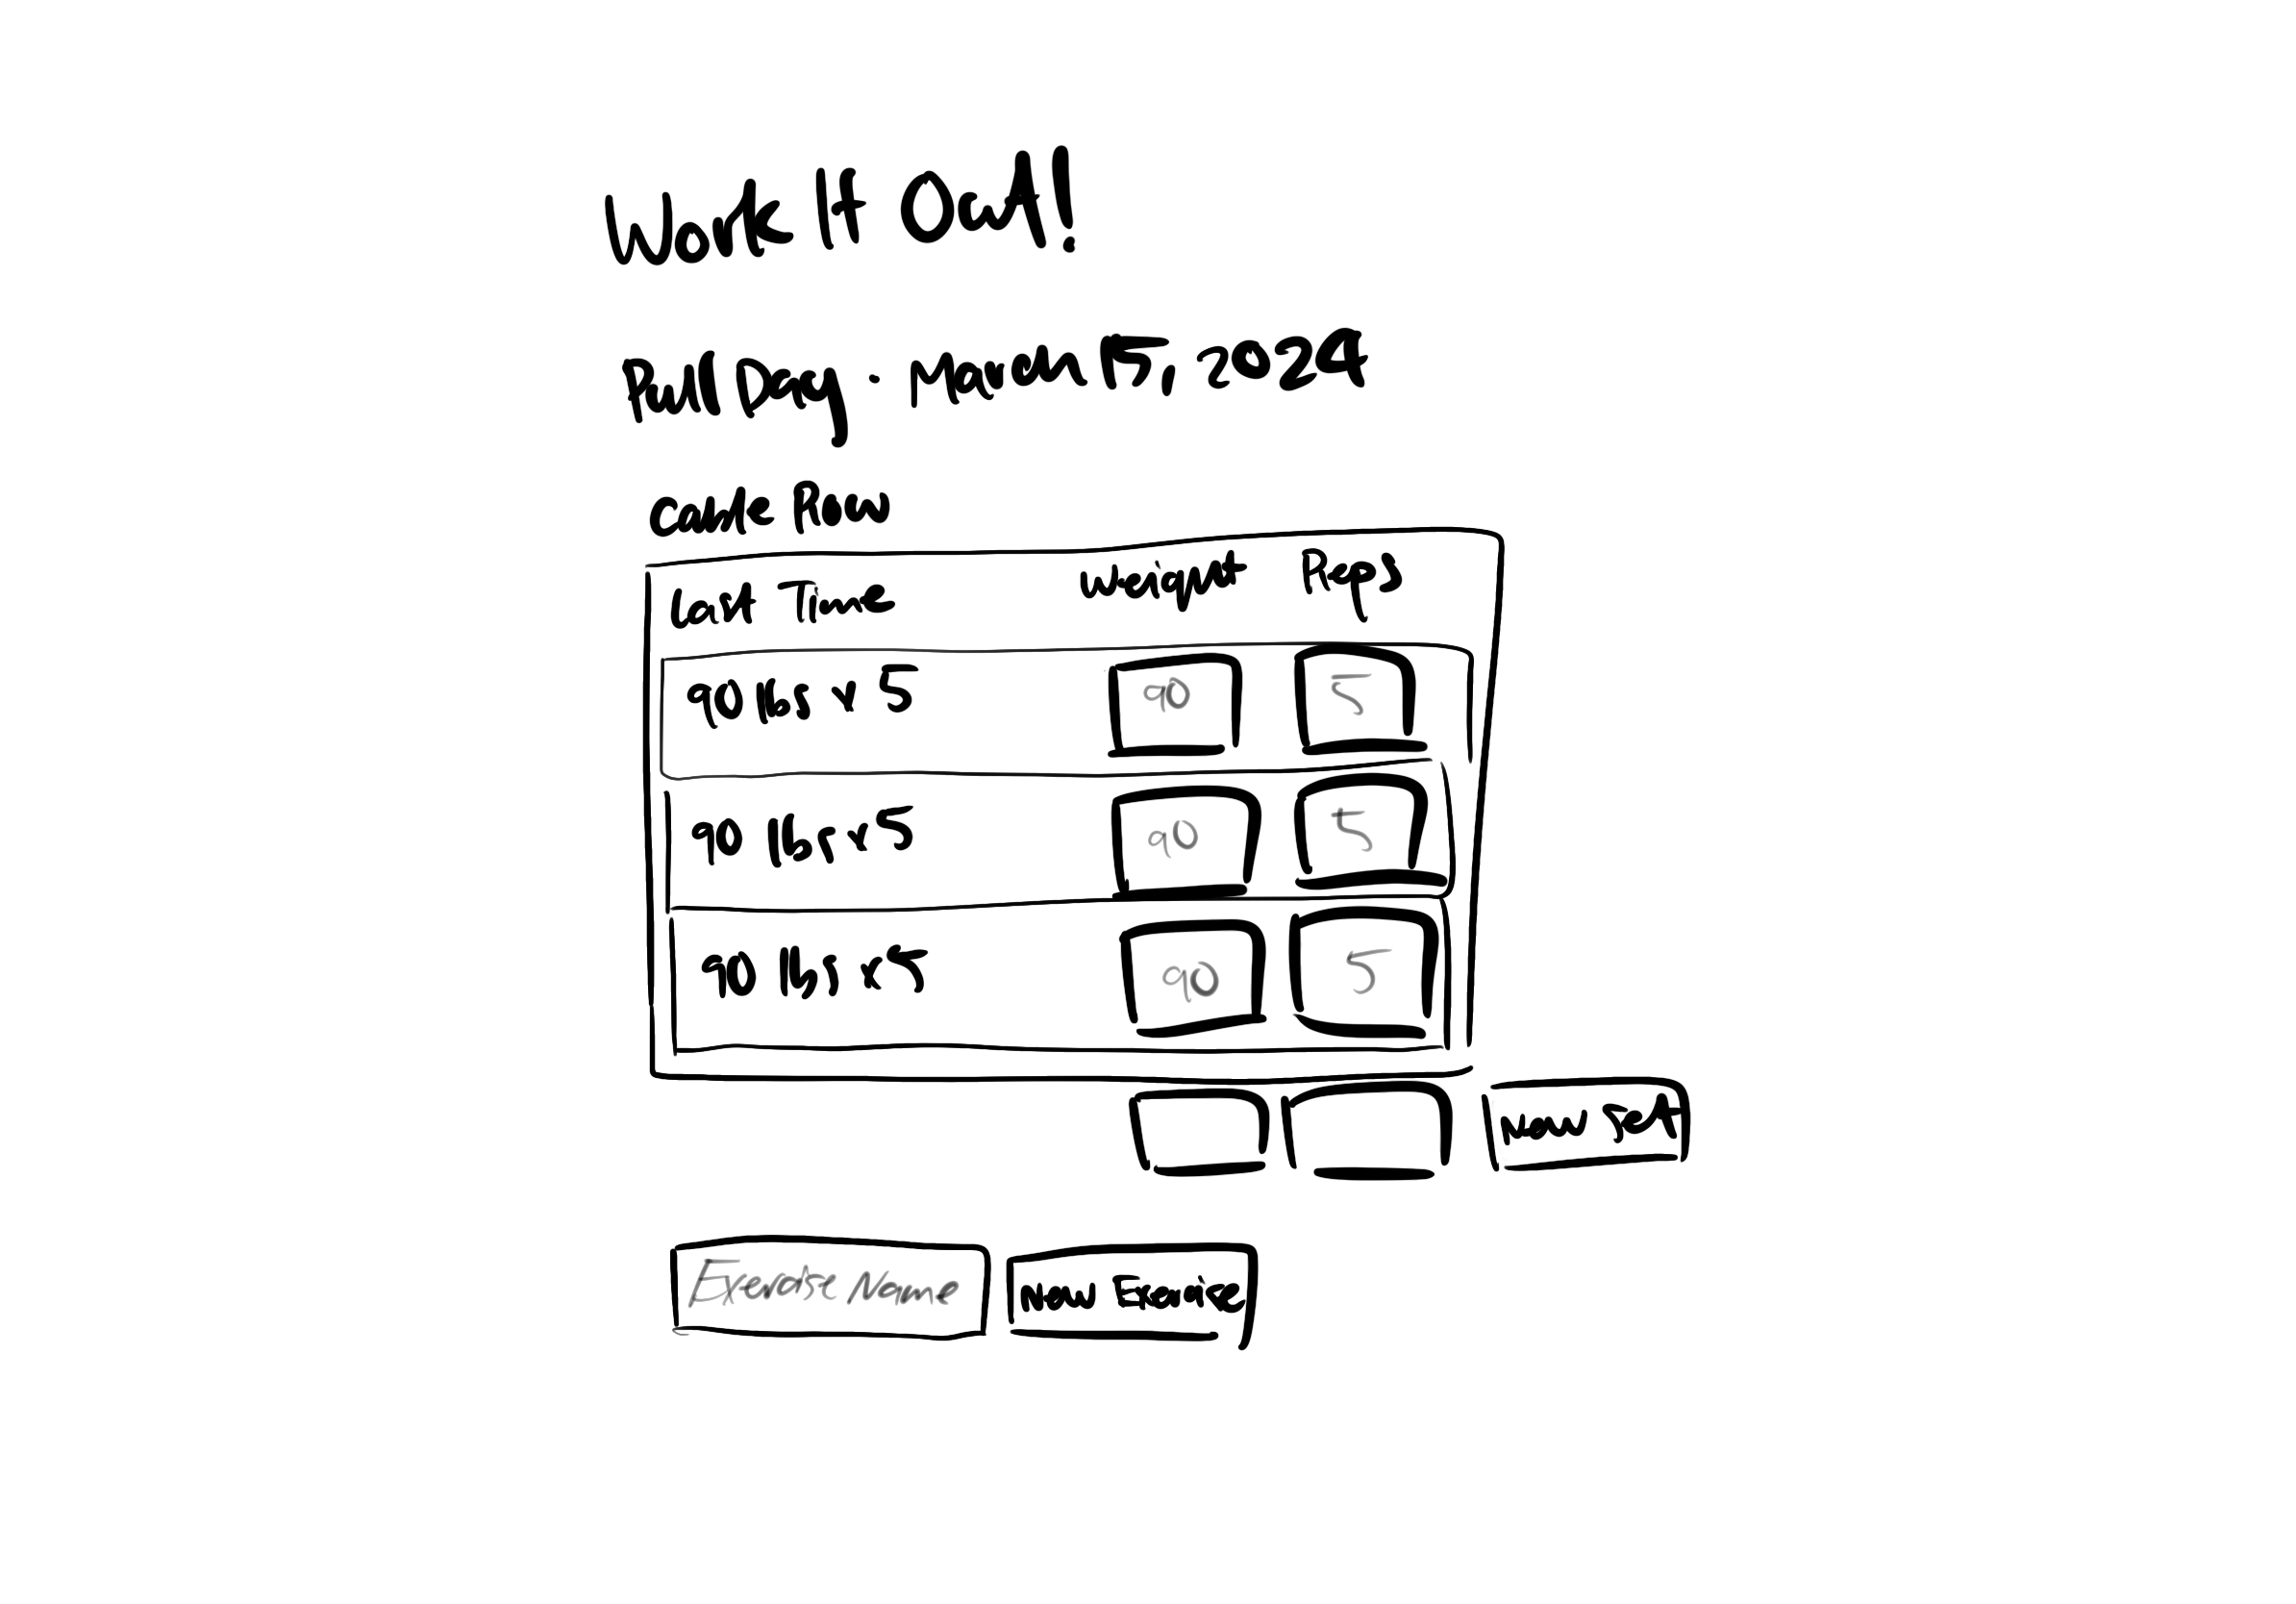 Work It Out!
Pull Day · March 15, 2024
Cable Row
Last Time Weight Reps
90 lbs x 5 90 5
90 lbs x 5 90 5
90 lbs x 5 90 5
New Set
Exercise Name New Exercise